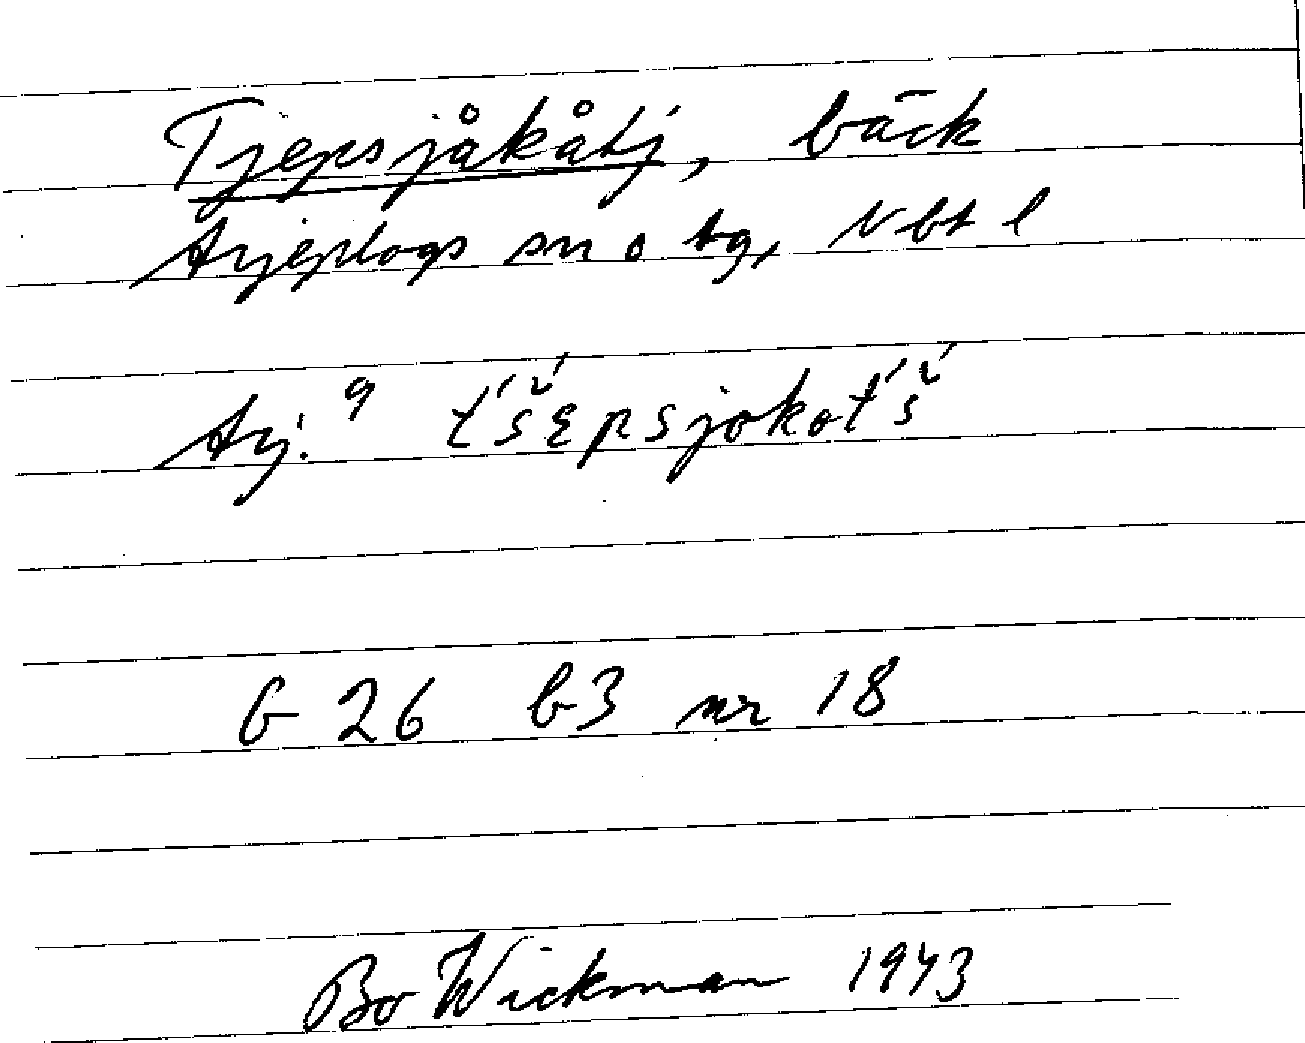 Tjepsjåkåtj, bäck
Arjeplogs sn o tg, Vbt l
Arj. 9 t́š́ɛpsjokot́š́
G 26 b3 nr 18
Bo Wickman 1943